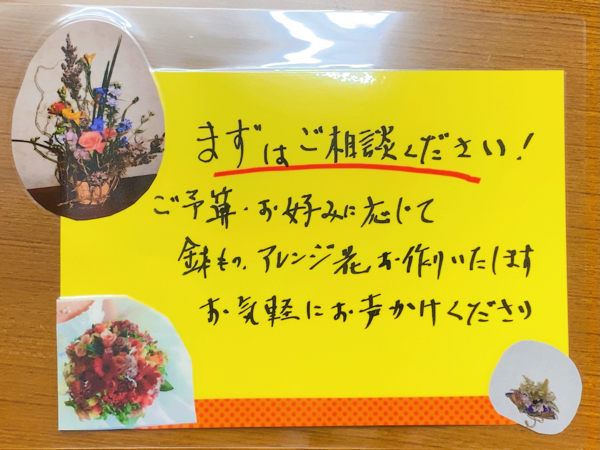 まずはご相談ください!
ご予算・お好みに応じて
鉢もの、アレンジ花お作りいたします
お気軽にお声かけください